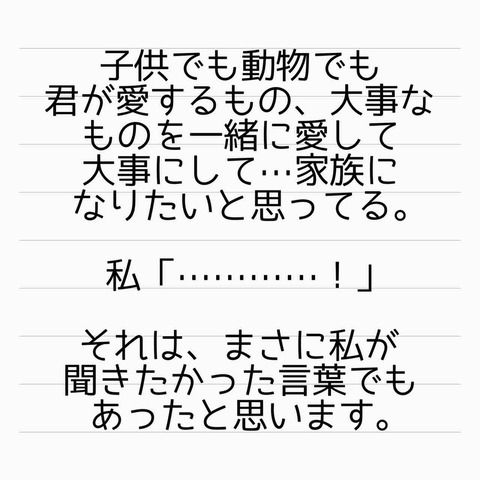 子供でも動物でも
君が愛するもの、大事な
ものを一緒に愛して
大事にして…家族に
なりたいと思ってる。
私「…………！」
それは、まさに私が
聞きたかった言葉でも
あったと思います。